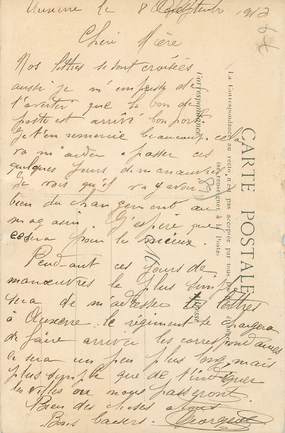 Auxerre le 8 Septembre 1912
Chère Mère
Nos lettres se sont croisées
aussi je m'empresse de
t'avertir que le bon de
poste est arrivé à bon port
je t'en remercie beaucoup. cela
va m'aider a passer ces
quelques jours de manœuvres
Je vois qu'il va y avoir
bien du changement au
magasin. J'espère que
ce sera pour le mieux.
Pendant ces jours de
manœuvres le plus simple
sera de m'adresser les lettres
à Auxerre. le régiment se chargera
de faire arriver les correspondances
ce sera un peu plus long mais
plus simple que de t'indiquer
les villes où nous passerons
Bien des choses a tous
Bons baisers. Georges
CARTE POSTALE
La Correspondance au recto n'est pas acceptée par tous
(se renseigner à la Poste)
Correspondance